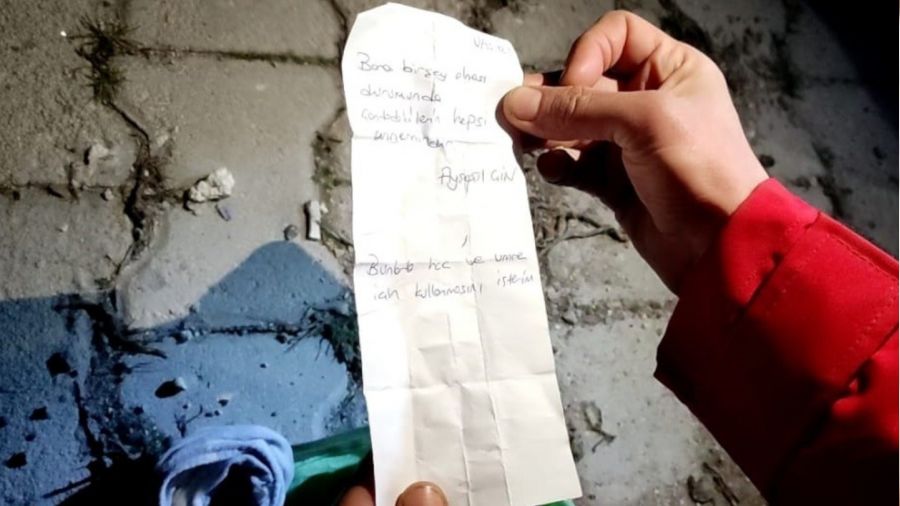 Bana birşey olması
durumunda
hepsi
annemindir
Ayşegül GİN
Bunlarla hac ve umre
için kullanmasını isterim